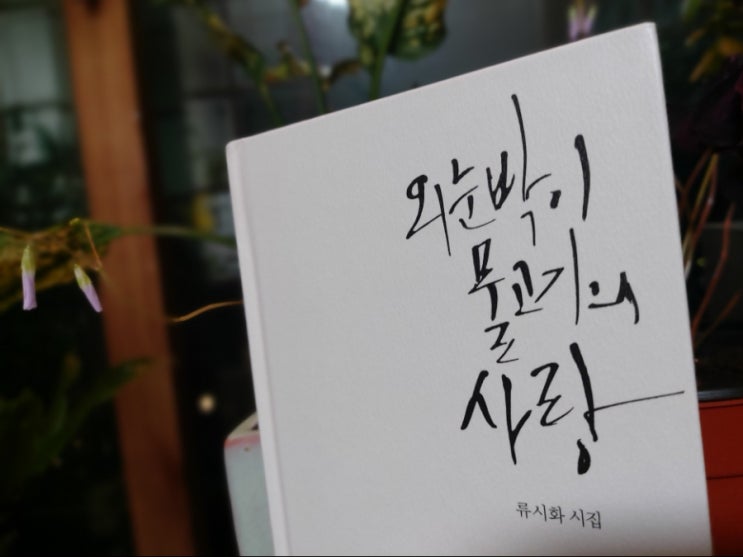 외눈박이
물고기의
사랑
류시화 시집